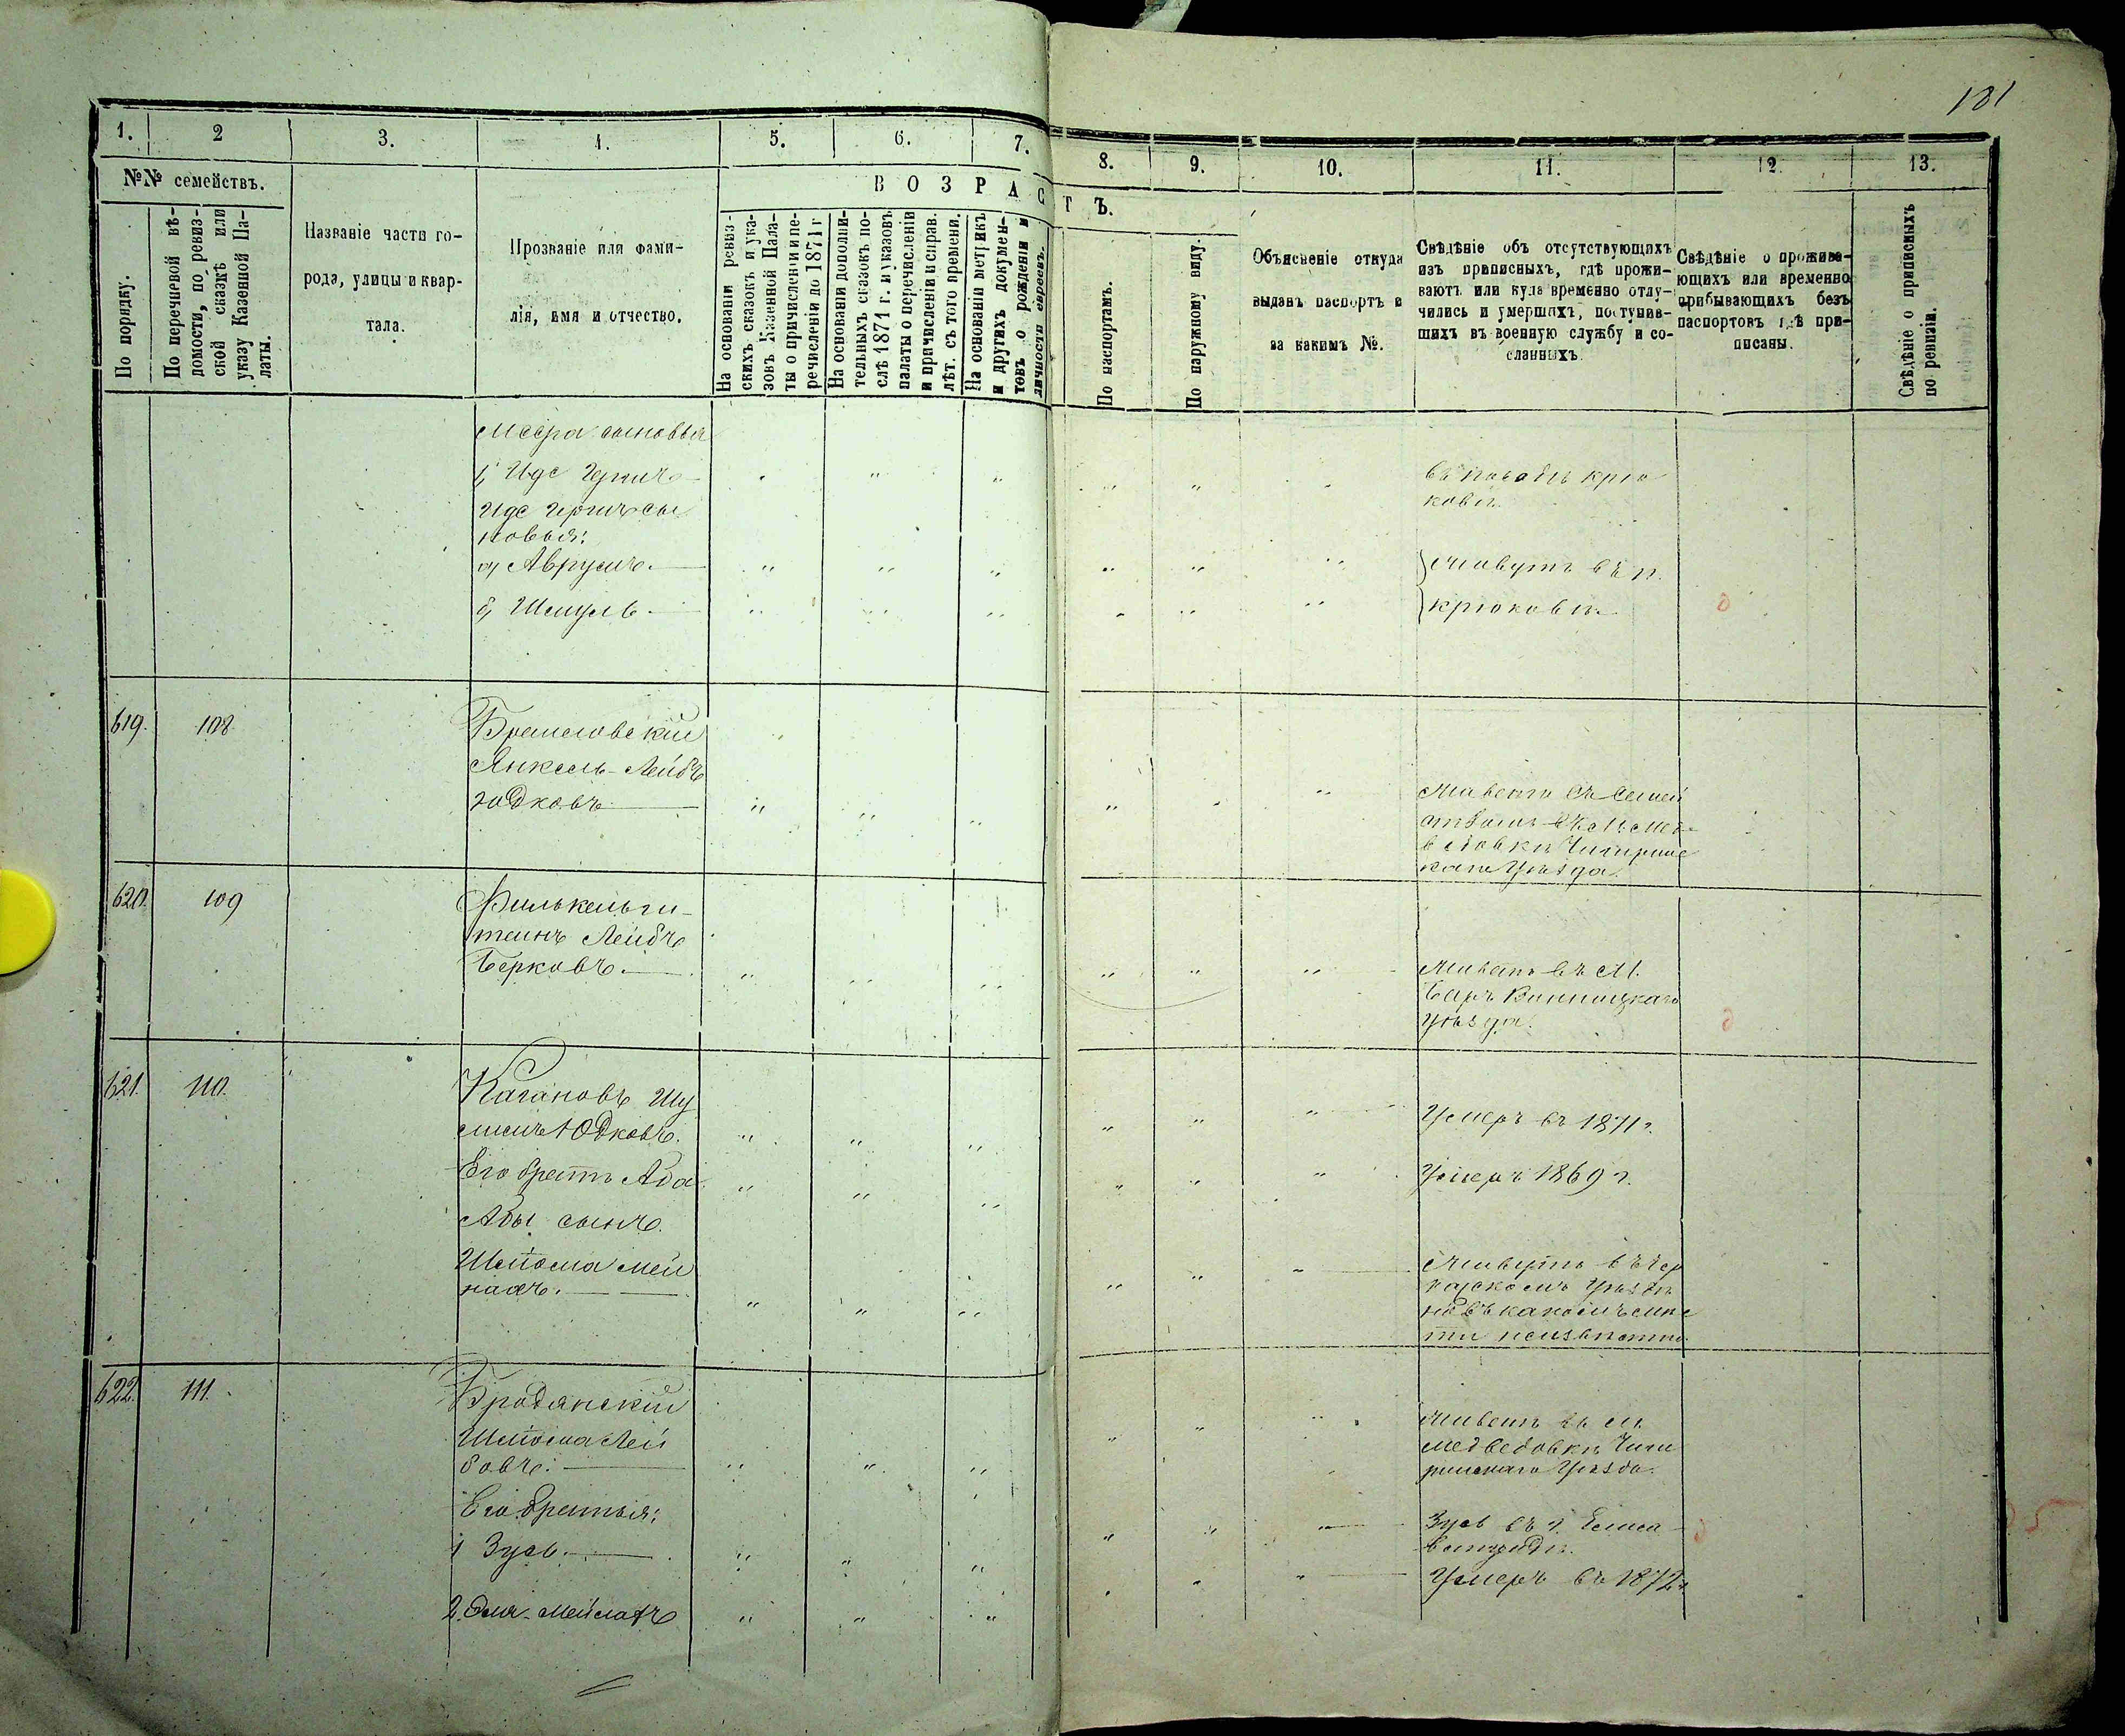 181
1. 2 3. 4. 5. 6. 7. 8. 9. 10. 11. 12. 13.
№№ семействъ.
По порядку.
По перечневой вѣ-
домости, по ревиз-
ской сказкѣ или
указу Казенной Па-
латы.
Названіе части го-
рода, улицы и квар-
тала.
Прозваніе или фами-
лія, имя и отчество.
ВОЗРАСТЪ.
На основаніи ревиз-
скихъ сказокъ и ука-
зовъ Казенной Пала-
ты о причисленіи и пе-
речисленіи до 1871 г
На основаніи дополни-
тельныхъ сказокъ по-
слѣ 1871 г. и указовъ
палаты о перечисленіи
и причисленіи и справ.
лѣт. съ того времени.
На основаніи метрикъ
и другихъ докумен-
товъ о рожденіи и
личности евреевъ.
По паспортамъ.
По наружному виду.
Объясненіе откуда
выданъ паспортъ и
за какимъ №.
Свѣдѣніе объ отсутствующихъ
изъ приписныхъ, гдѣ прожи-
ваютъ или куда временно отлу-
чились и умершихъ, поступив-
шихъ въ военную службу и со-
сланныхъ.
Свѣдѣніе о прожива-
ющихъ или временно
прибывающихъ безъ
паспортовъ гдѣ при-
писаны.
Свѣдѣніе о приписныхъ
по ревизіи.
сыновья
1, Идс Гершъ
въ посадѣ Крю
ковѣ.
Идс Гершъ сы
новья:
а, Аврумъ.
Живутъ въ п.
б, Шмуль
Крюковѣ.
619. 108
Янкель-Лейбъ
Юдковъ
Живетъ съ семей
ствомъ въ М. Мед-
ведовкѣ Чигирин
каго Уѣзда.
620. 109
теинъ Лейбъ
Берковъ.
Живетъ въ М.
Баръ Винницкаго
Уѣзда.
621. 110.
Кагановъ Шу
лимъ Юдковъ.
Умеръ въ 1871 г.
Его братъ Аба
Умеръ 1869 г.
Абы сынъ.
Шлиома Мей
нахъ.
Живутъ въ Чер
каскомъ Уѣздѣ
но въ какомъ мѣс
ти неизвѣстно.
622. 111.
Бродянскій
Шлиома Лей
бовъ.
Живетъ въ м.
Медведовкѣ Чиги
ринскаго Уѣзда.
Его братья:
1 Зусь.
Зусь въ г. Елиса
ветградѣ.
2.
Умеръ въ 1872 г.